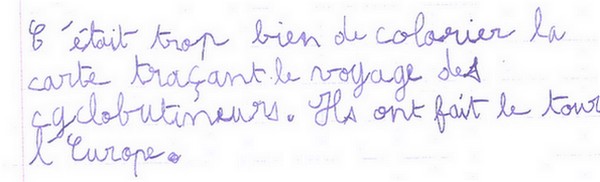 C'était trop bien de colorier la
carte traçant le voyage des
cyclobutineurs. Ils ont fait le tour
l'Europe.